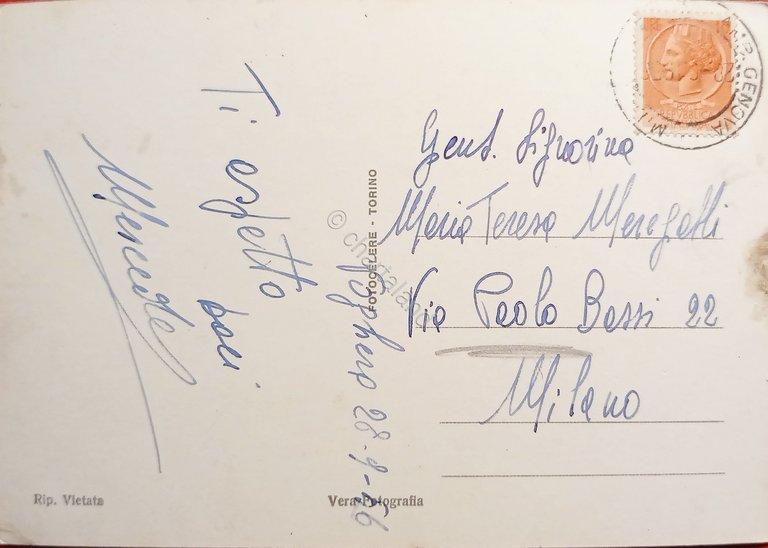 Ti aspetto
baci
Mercede
Voghera 28-9-56
Gent. Signorina
Maria Teresa Meregalli
Via Paolo Bassi 22
Milano
FOTOCELERE - TORINO
Rip. Vietata
Vera Fotografia
GENOVA
© chartaland